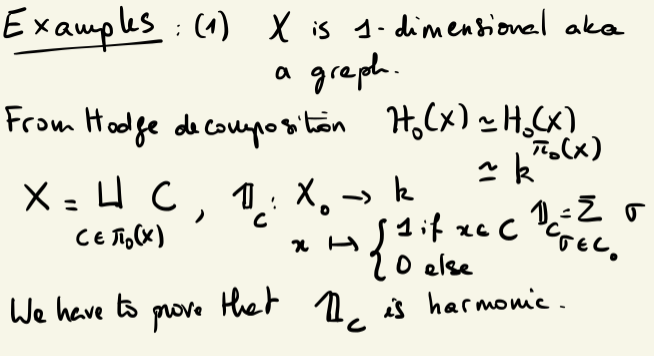 Examples : (1) X is 1-dimensional aka
a graph.
From Hodge decomposition ℋ₀(X) ≃ H₀(X)
≃ k^{π₀(X)}
X = ⊔_{C ∈ π₀(X)} C , 𝟙_C : X₀ → k
x ↦ { 1 if x ∈ C 𝟙_C = Σ_{σ ∈ C₀} σ
0 else
We have to prove that 𝟙_C is harmonic.